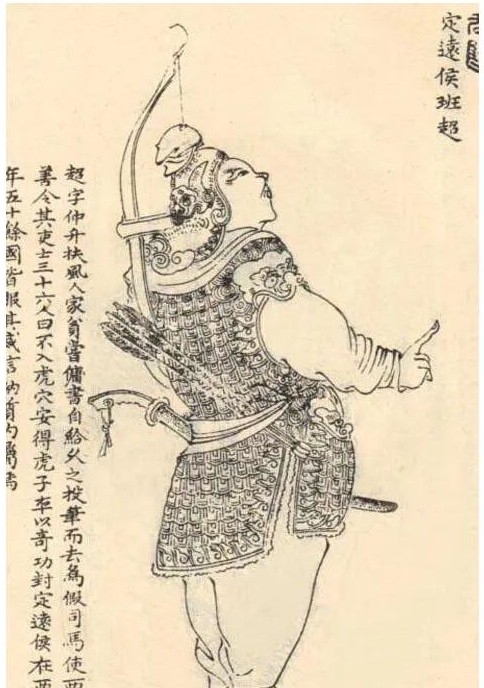 定遠侯班超
超字仲升扶風人家貧嘗傭書自給久之投筆而去為假司馬使西
善令其吏士三十六人曰不入虎穴安得虎子卒以奇功封定遠侯在西
年五十餘國皆服其威言納質內屬焉